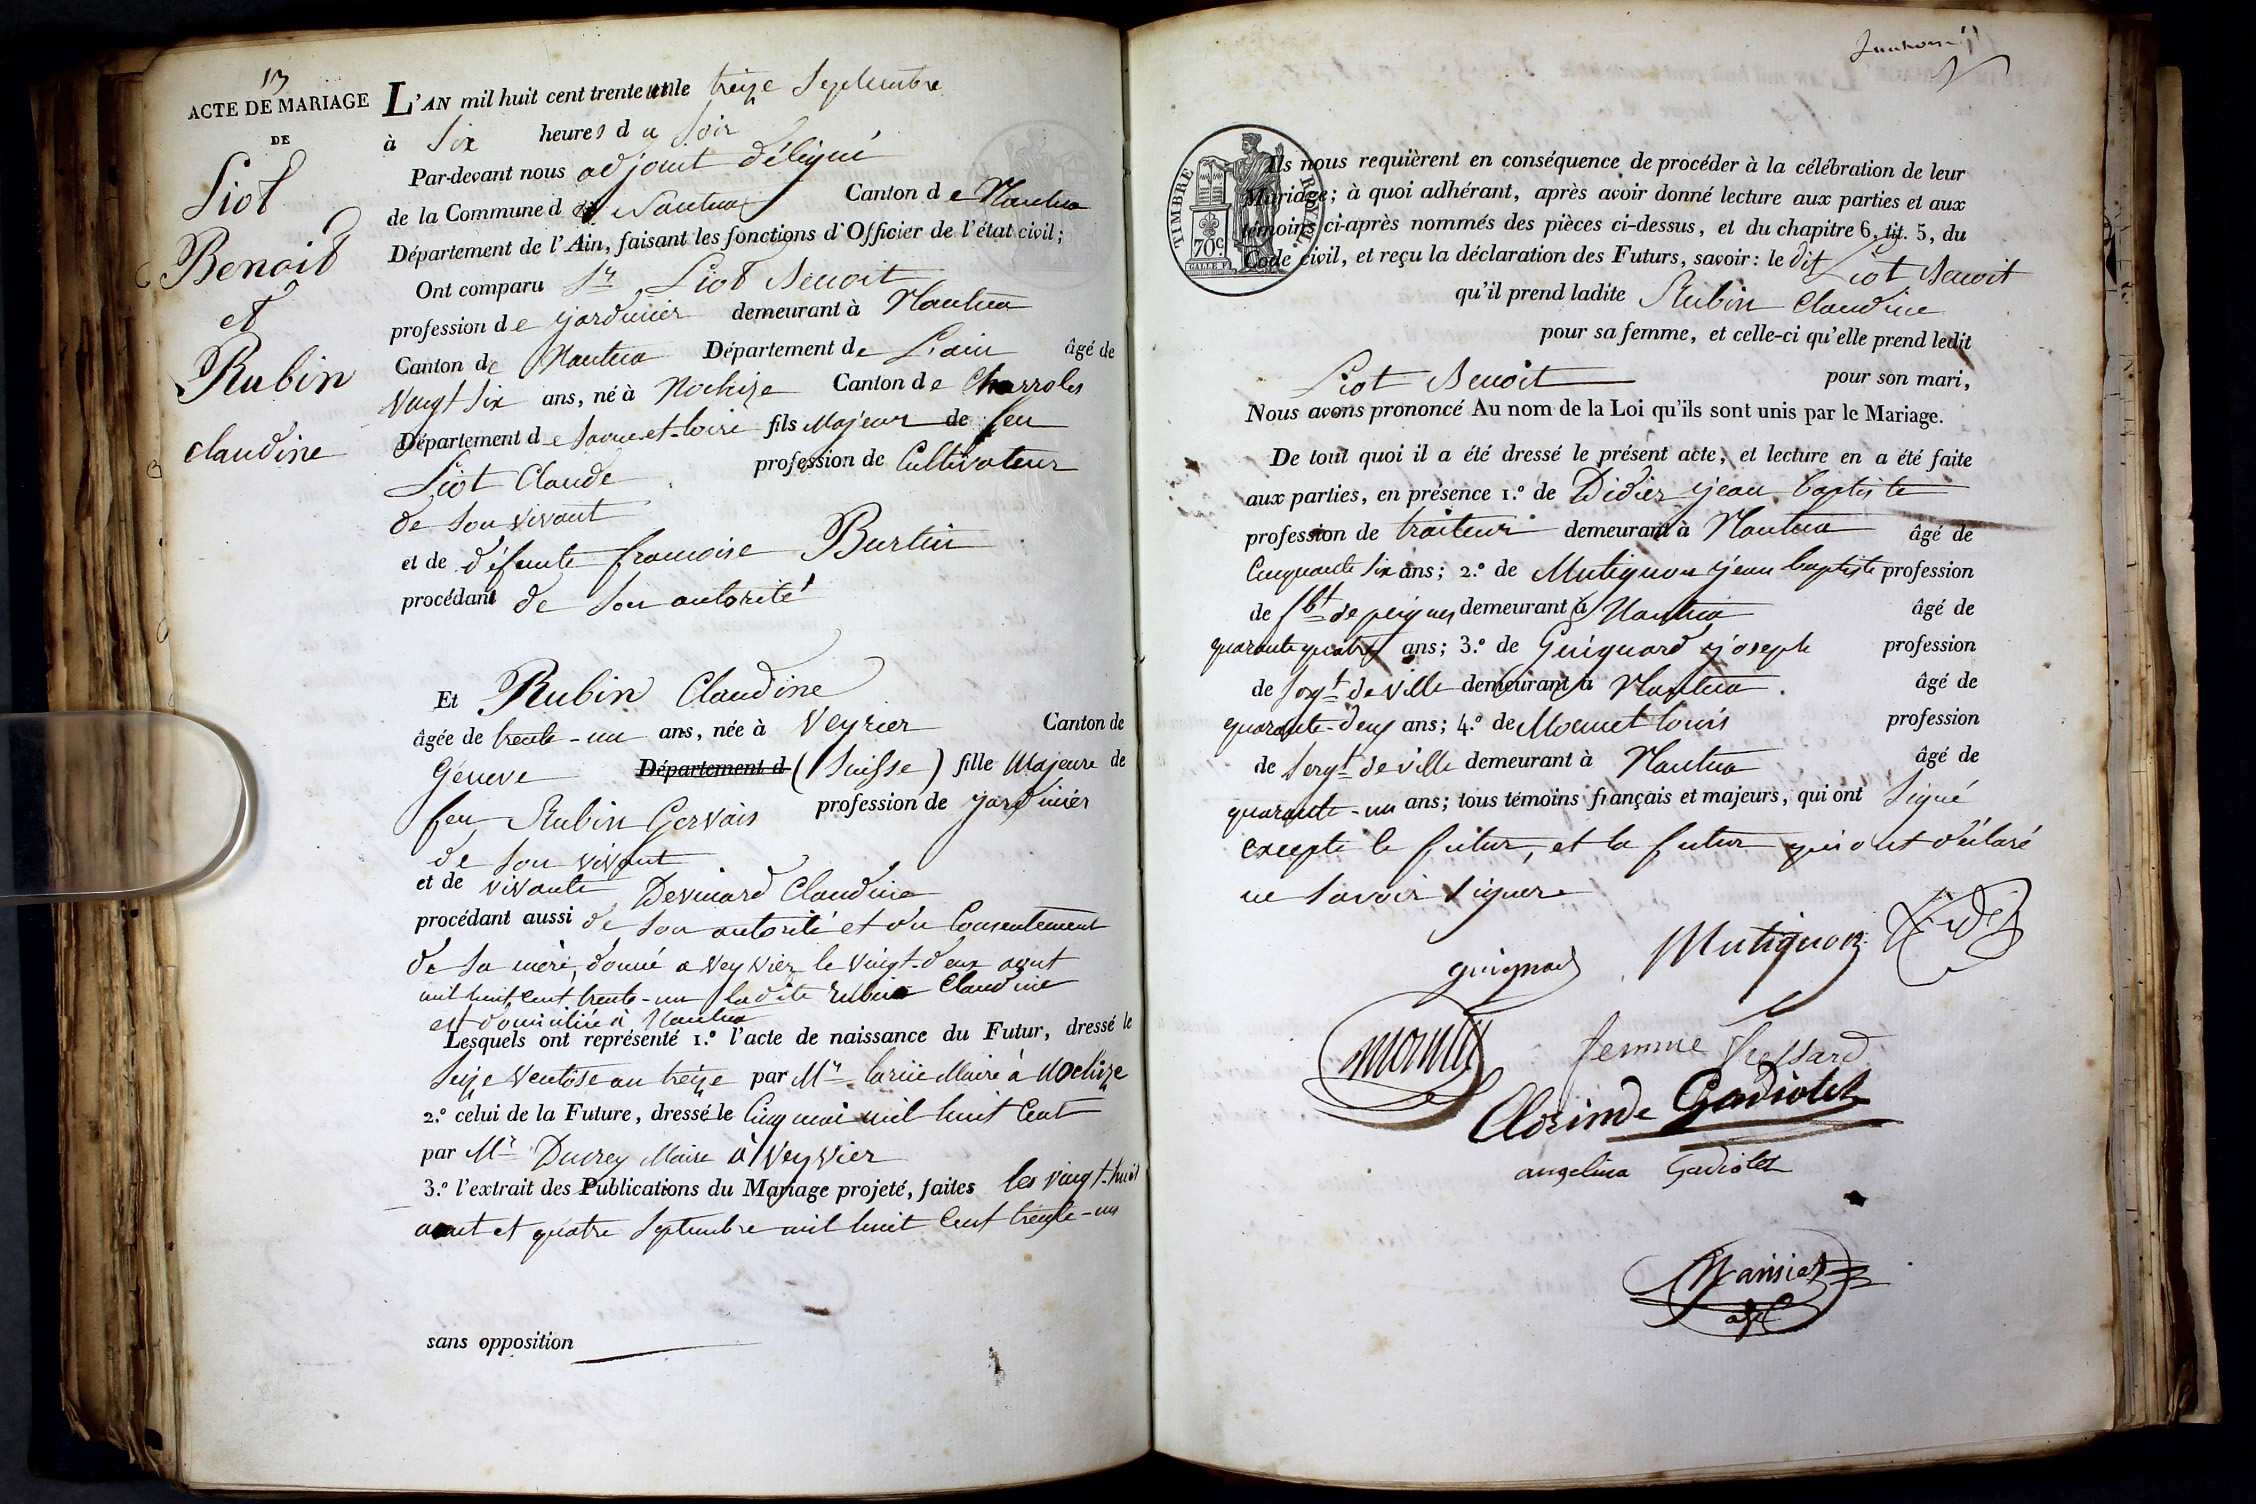 13
ACTE DE MARIAGE
DE
Liot
Benoit
et
Rubin
claudine
L'AN mil huit cent trente un le treize Septembre
à Six heures d u Soir
Par-devant nous adjoint délégué
de la Commune d e Nantua Canton d e Nantua
Département de l'Ain, faisant les fonctions d'Officier de l'état civil;
Ont comparu Sr Liot Benoit
profession d e jardinier demeurant à Nantua
Canton de Nantua Département de L'ain âgé de
Vingt Six ans, né à Nochize Canton d e Charroles
Département d e Saone-et-loire fils Majeur de feu
Liot Claude profession de Cultivateur
de Son vivant
et de défunte francoise Burtin
procédant de Son autorité
Et Rubin Claudine
âgée de trente-un ans, née à Veyrier Canton de
Géneve Département d (Suisse) fille Majeure de
feu Rubin Gervais profession de jardinier
de Son vivant
et de vivante Devinard Claudine
procédant aussi de Son autorité et du Consentement
de Sa mère, donné a Veyrier le vingt-deux aout
mil huit cent trente-un ladite Rubin Claudine
est domiciliée à Nantua
Lesquels ont représenté 1.º l'acte de naissance du Futur, dressé le
Seize Ventose an treize par Mr Maire à Nochize
2.º celui de la Future, dressé le Cinq mai mil huit Cent
par Mr Ducrey Maire à Veyrier
3.º l'extrait des Publications du Mariage projeté, faites les vingt-huit
aout et quatre Septembre mil huit Cent trente-un
sans opposition
TIMBRE ROYAL.
70c.
Ils nous requièrent en conséquence de procéder à la célébration de leur
Mariage; à quoi adhérant, après avoir donné lecture aux parties et aux
témoins ci-après nommés des pièces ci-dessus, et du chapitre 6, tit. 5, du
Code civil, et reçu la déclaration des Futurs, savoir: le dit Liot Benoit
qu'il prend ladite Rubin Claudine
pour sa femme, et celle-ci qu'elle prend ledit
Liot Benoit pour son mari,
Nous avons prononcé Au nom de la Loi qu'ils sont unis par le Mariage.
De tout quoi il a été dressé le présent acte, et lecture en a été faite
aux parties, en présence 1.º de Didier jean baptiste
profession de traiteur demeurant à Nantua âgé de
Cinquante Six ans; 2.º de Mutignon jean baptiste profession
de fbt de peignes demeurant à Nantua âgé de
quarante quatre ans; 3.º de Guignard joseph profession
de Sergt de ville demeurant à Nantua. âgé de
quarante-deux ans; 4.º de Mounet louis profession
de Sergt de ville demeurant à Nantua âgé de
quarante-un ans; tous témoins français et majeurs, qui ont Signé
excepte le futur, et la futur qui ont déclaré
ne Savoir Signer
guignard Mutignon Didier
femme
Clorinde Gadiolet
angelina Gadiolet